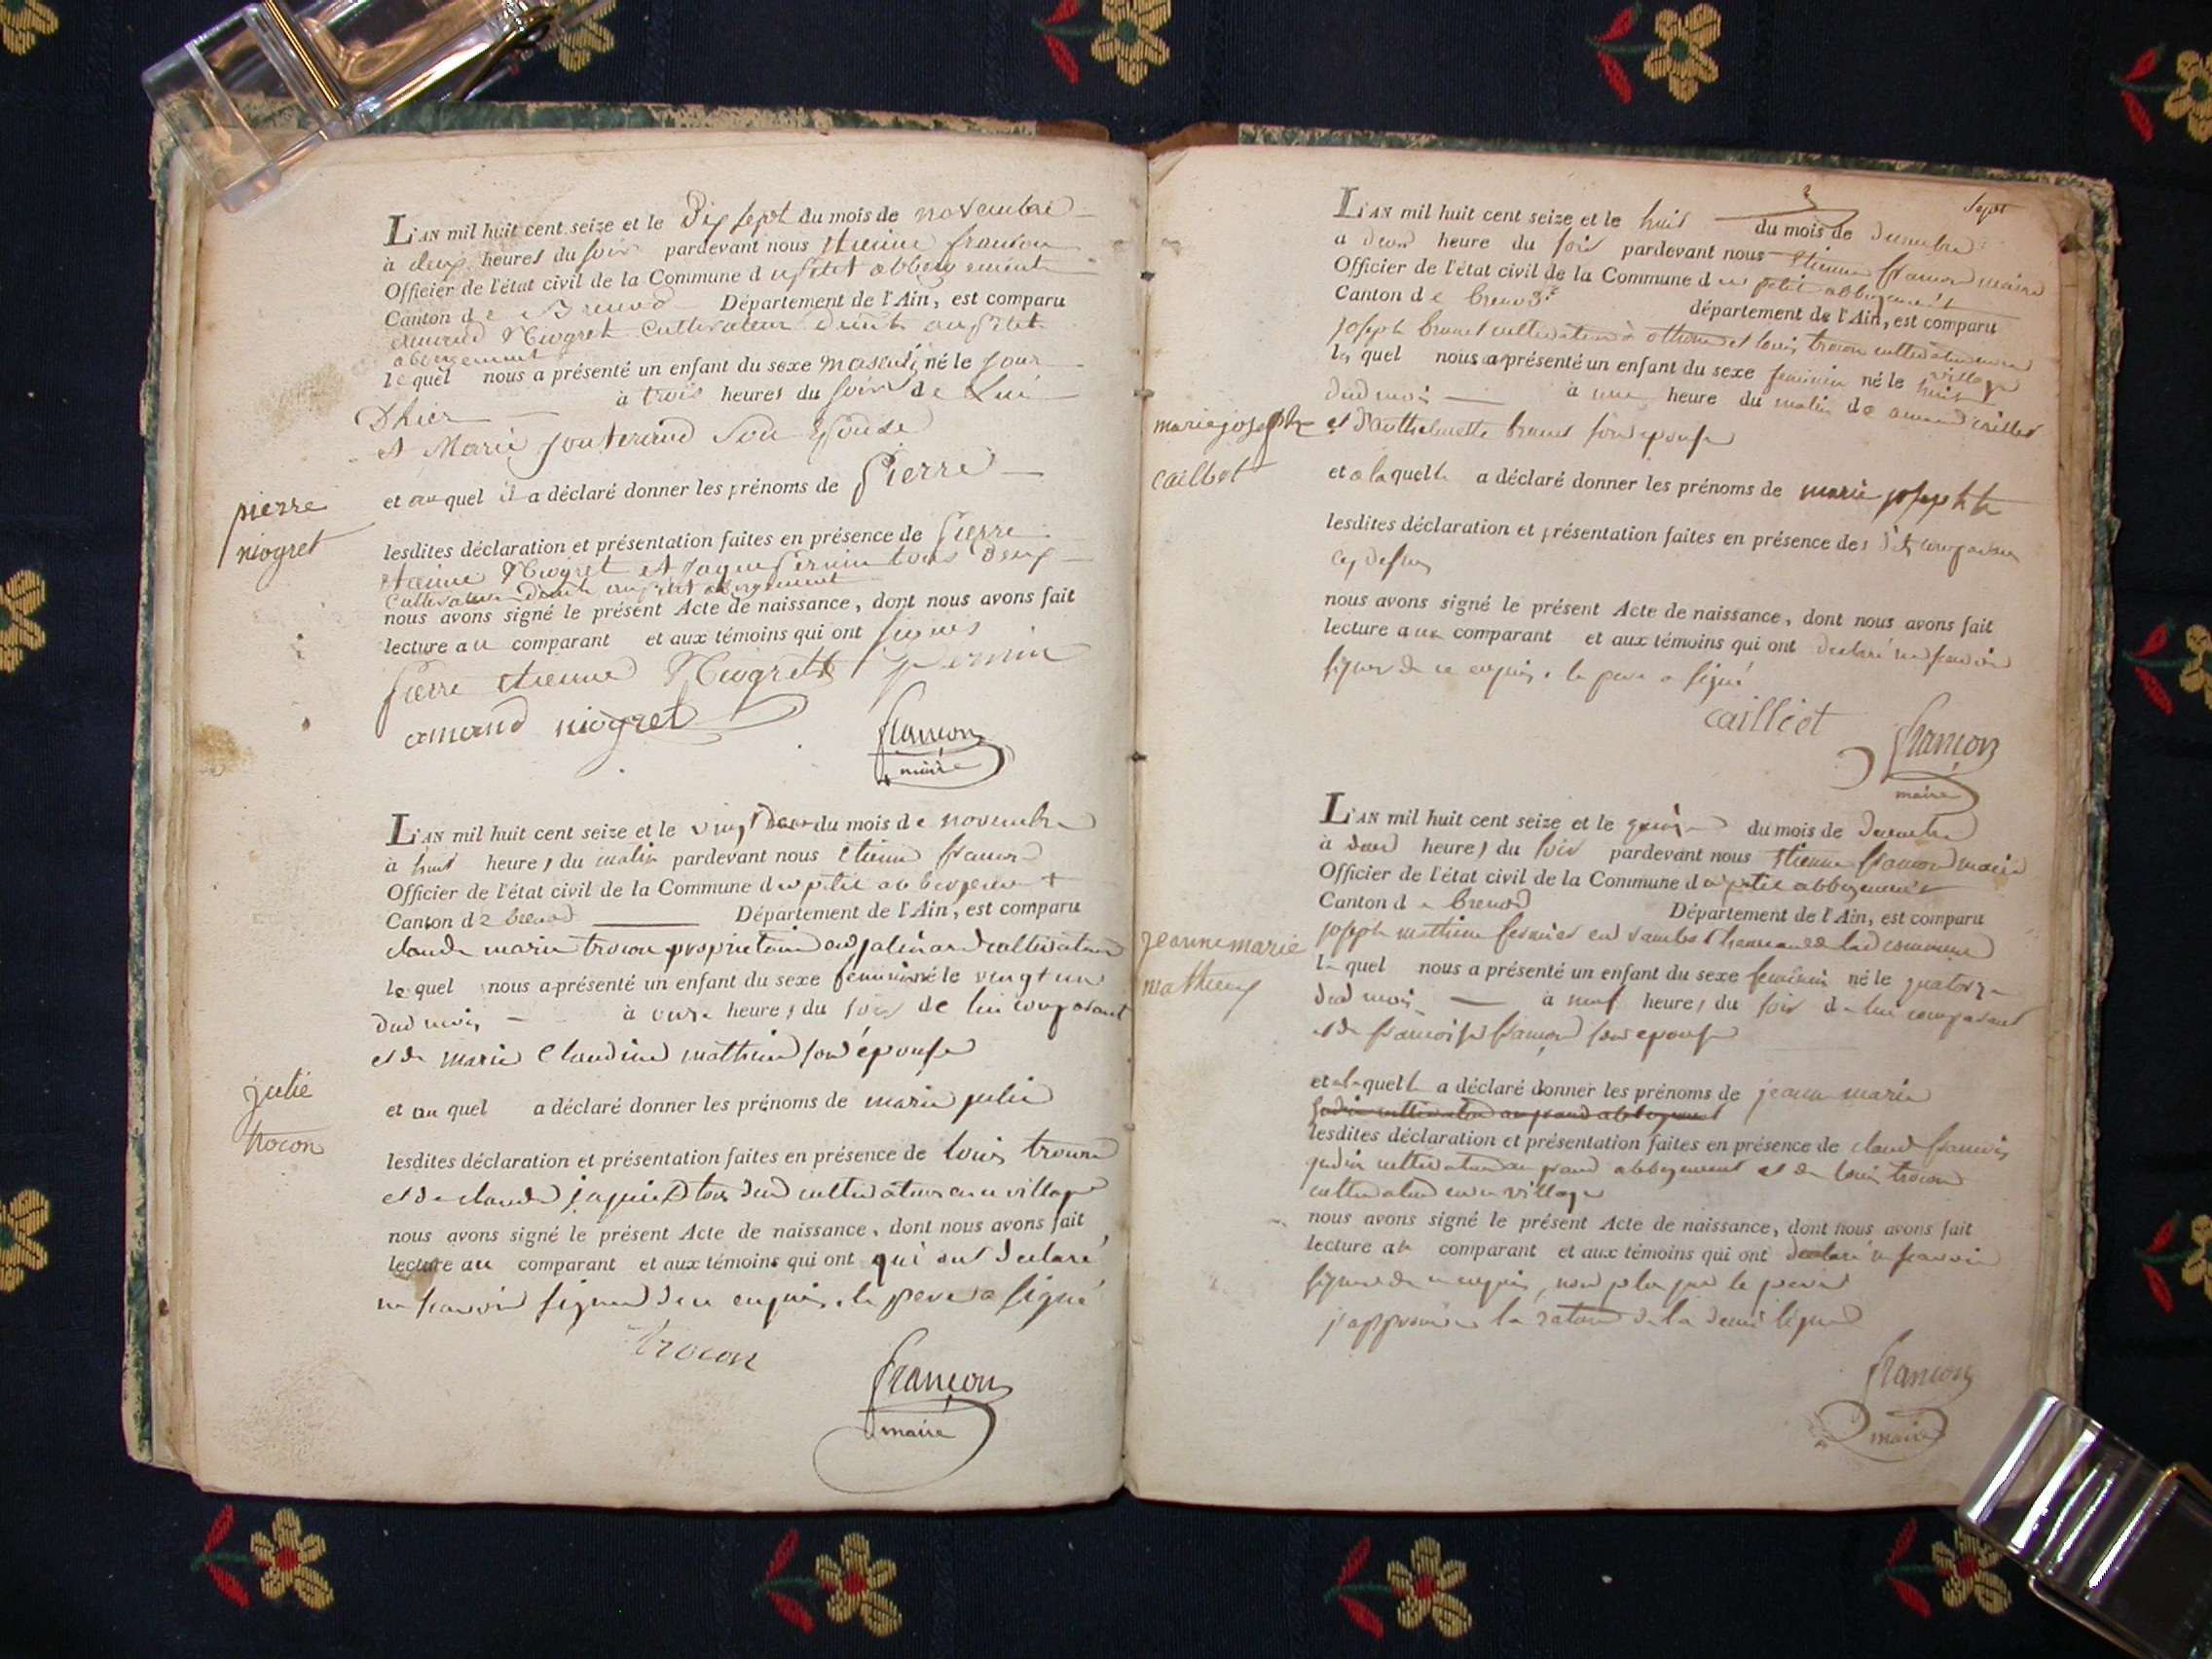 pierre
niogret
L'AN mil huit cent seize et le Dix sept du mois de novembre
à deux heures du soir pardevant nous etienne françon
Officier de l'état civil de la Commune du petit abbergement
Canton de Brenod Département de l'Ain, est comparu
amand Niogret cultivateur demt au petit
abergement
lequel nous a présenté un enfant du sexe masculin né le jour
D'hier à trois heures du soir de Lui
et Marie jouterand son Epouse
et auquel il a déclaré donner les prénoms de Pierre
lesdites déclaration et présentation faites en présence de Pierre
etienne Niogret et jaque Pernin tous deux
cultivateur demt au petit abergement
nous avons signé le présent Acte de naissance, dont nous avons fait
lecture au comparant et aux témoins qui ont signés
Pierre etienne Niogret Pernin
amand niogret
françon
maire
julie
trocon
L'AN mil huit cent seize et le vingt deux du mois de novembre
à huit heures du matin pardevant nous etienne françon
Officier de l'état civil de la Commune du petit abbergement
Canton de brenod Département de l'Ain, est comparu
claude marie trocon proprietaire cultivateur
lequel nous a présenté un enfant du sexe féminin né le vingt un
dud mois à onze heures du soir de lui comparant
et de marie claudine mathieu son épouse
et au quel a déclaré donner les prénoms de marie julie
lesdites déclaration et présentation faites en présence de louis trocon
et de claude jaquied tous deux cultivateurs en ce village
nous avons signé le présent Acte de naissance, dont nous avons fait
lecture au comparant et aux témoins qui ont qui ont declaré
ne scavoir signer de ce enquis, le pere a signé
trocon
françon
maire
sept
marie josephte
cailliot
L'AN mil huit cent seize et le huit du mois de decembre
a deux heure du soir pardevant nous etienne françon maire
Officier de l'état civil de la Commune du petit abbergement
Canton de brenod département de l'Ain, est comparu
joseph brunet cultivateur à et louis trocon cultivateur en ce
village
lequel nous a présenté un enfant du sexe feminin né le huit
dud mois à une heure du matin de amand cailliot
et d'anthelmette brunet son epouse
et a laquelle a déclaré donner les prénoms de marie josephte
lesdites déclaration et présentation faites en présence des dts comparans
cy dessus
nous avons signé le présent Acte de naissance, dont nous avons fait
lecture aux comparant et aux témoins qui ont declaré ne scavoir
signer de ce enquis, le pere a signé
cailliot
françon
maire
jeanne marie
mathieu
L'AN mil huit cent seize et le quinze du mois de decembre
à deux heures du soir pardevant nous etienne françon maire
Officier de l'état civil de la Commune du petit abbergement
Canton de brenod Département de l'Ain, est comparu
joseph mathieu fermier en lad commune
lequel nous a présenté un enfant du sexe feminin né le quatorze
dud mois à neuf heures du soir de lui comparant
et de françoise françon son epouse
et a laquelle a déclaré donner les prénoms de jeanne marie
cultivateur au grand abbergement
lesdites déclaration et présentation faites en présence de claude françois
cultivateur au grand abbergement et de louis trocon
cultivateur en ce village
nous avons signé le présent Acte de naissance, dont nous avons fait
lecture au comparant et aux témoins qui ont declaré ne scavoir
signer de ce enquis, non plus que le pere
j'approuve la rature de la demi ligne
françon
maire